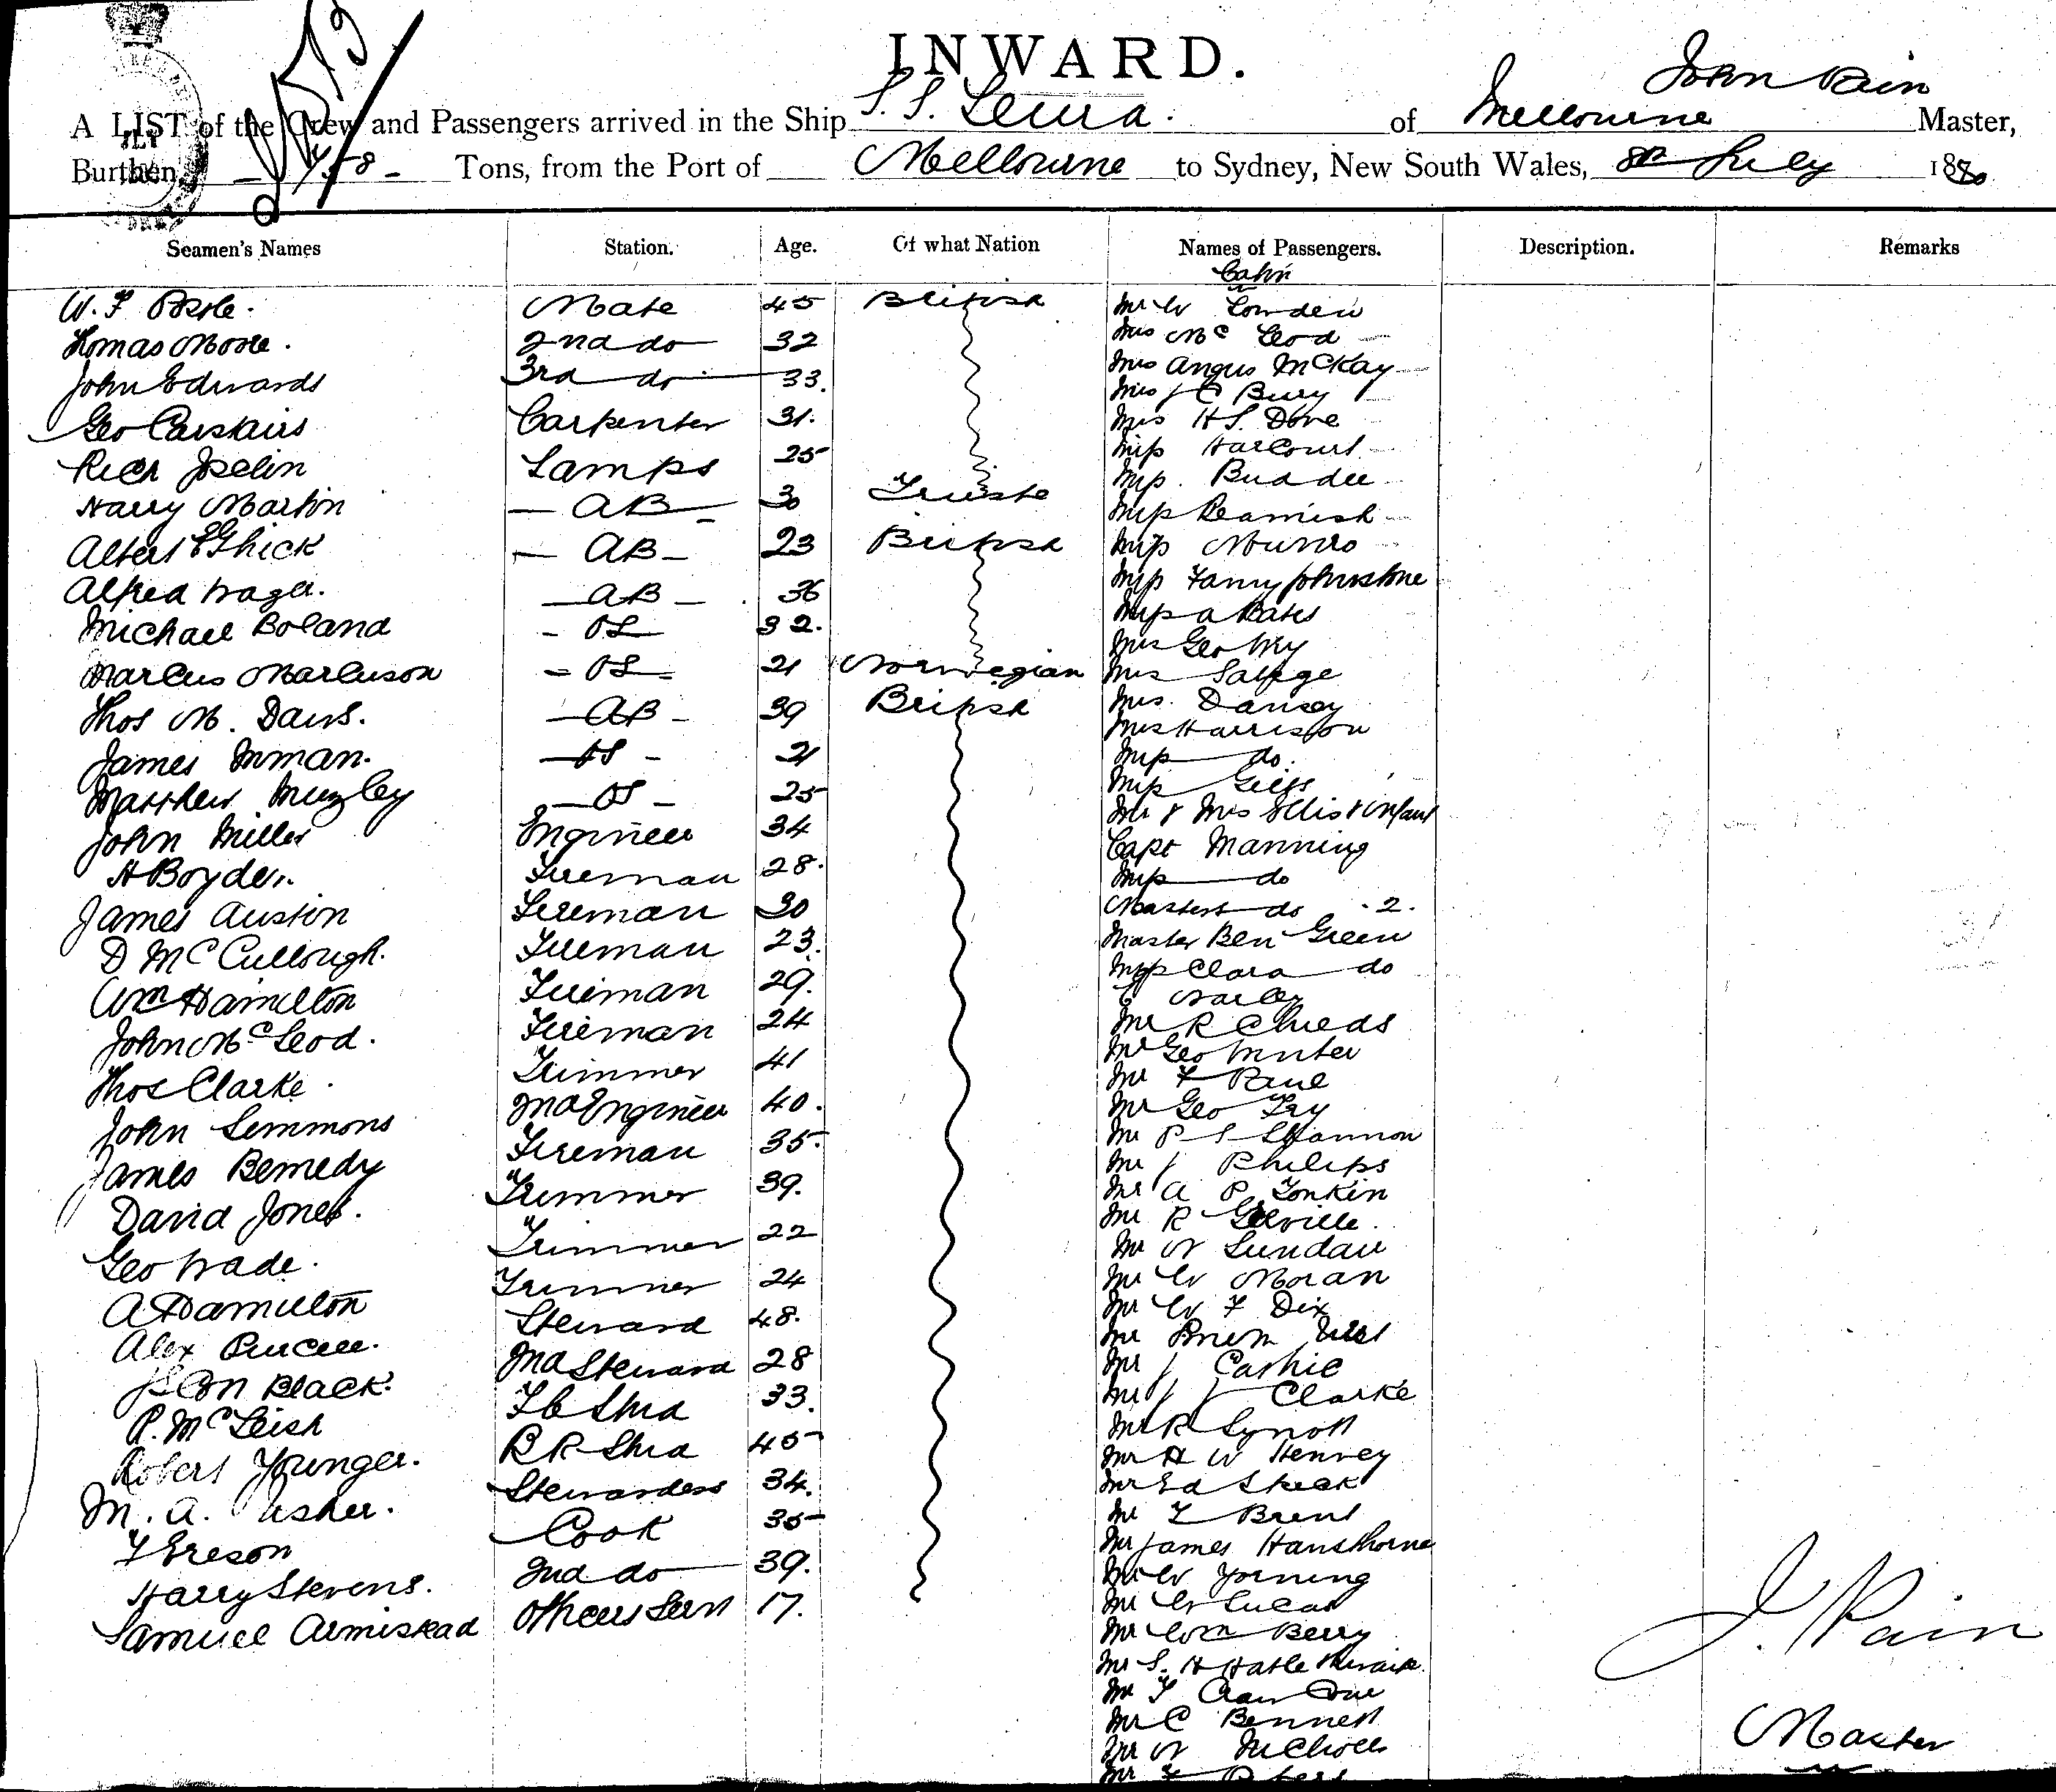 INWARD.
John Pain
A LIST of the Crew and Passengers arrived in the Ship S. S. Leura. of Melbourne Master,
Burthen 458 Tons, from the Port of Melbourne to Sydney, New South Wales, 8th July 1880
Seamen's Names Station. Age. Of what Nation Names of Passengers. Description. Remarks
Cabin
W. F. Mate 45 British Mr W Lowden
Thomas Moore. 2nd do 32 Mrs Mc Leod
John Edwards 3rd do 33. Mrs Angus McKay
Geo Carstairs Carpenter 31. Mrs J C Bury
Rich Joselin Lamps 25 Mrs H S. Dove
Harry Martin AB 30 Trieste Miss Harcourt
Albert E Ghick AB 23 British Miss. Buddee
Alfred Wager. AB 36 Miss Beamish
Michael Boland OS 32. Miss Munro
Marcus Marcuson OS 21 Norwegian Miss Fanny Johnstone
Thos M. Davis. AB 39 British Miss A Bates
James Inman. OS 21 Mrs Geo Fry
Matthew Muzley OS 25 Mrs Salvage
John Miller Engineer 34 Mrs. Dansey
H Boyden. Fireman 28. Mrs Harrison
James Austin Fireman 30 Miss do.
D McCullough. Fireman 23. Miss
Wm Hamilton Fireman 29. Mr & Mrs Ellis & Infant
John McLeod. Fireman 24 Capt Manning
Thos Clarke. Trimmer 41 Miss do
John Lemmons 2nd Engineer 40. Masters do 2.
James Fireman 35. Master Ben Green
David Jones. Trimmer 39. Miss Clara do
Geo Wade. Trimmer 22
A Hamilton Trimmer 24 Mr R Childs
Alex Purcell. Steward 48. Mr Geo
John Black. 2nd Steward 28 Mr F Paul
P. McLeish F C Stwd 33. Mr Geo Fry
Robert Younger. B R Stwd 45 Mr P S Shannon
M. A. Usher. Stewardess 34. Mr J Philips
F Ereson Cook 35 Mr A P Tonkin
Harry Stevens. 2nd do 39. Mr R
Samuel Armistead Officers Servt 17. Mr N
Mr W Moran
Mr W F Dix
Mr
Mr J Cashie
Mr J J Clarke
Mr R Synott
Mr H W Henvey
Mr Ed
Mr T Brent
Mr James Hawthorne
Mr W
Mr W Lucas
Mr Wm Berry
Mr S. H
Mr T
Mr C Bennett
Mr W Nicholls
Mr
J. Pain
Master